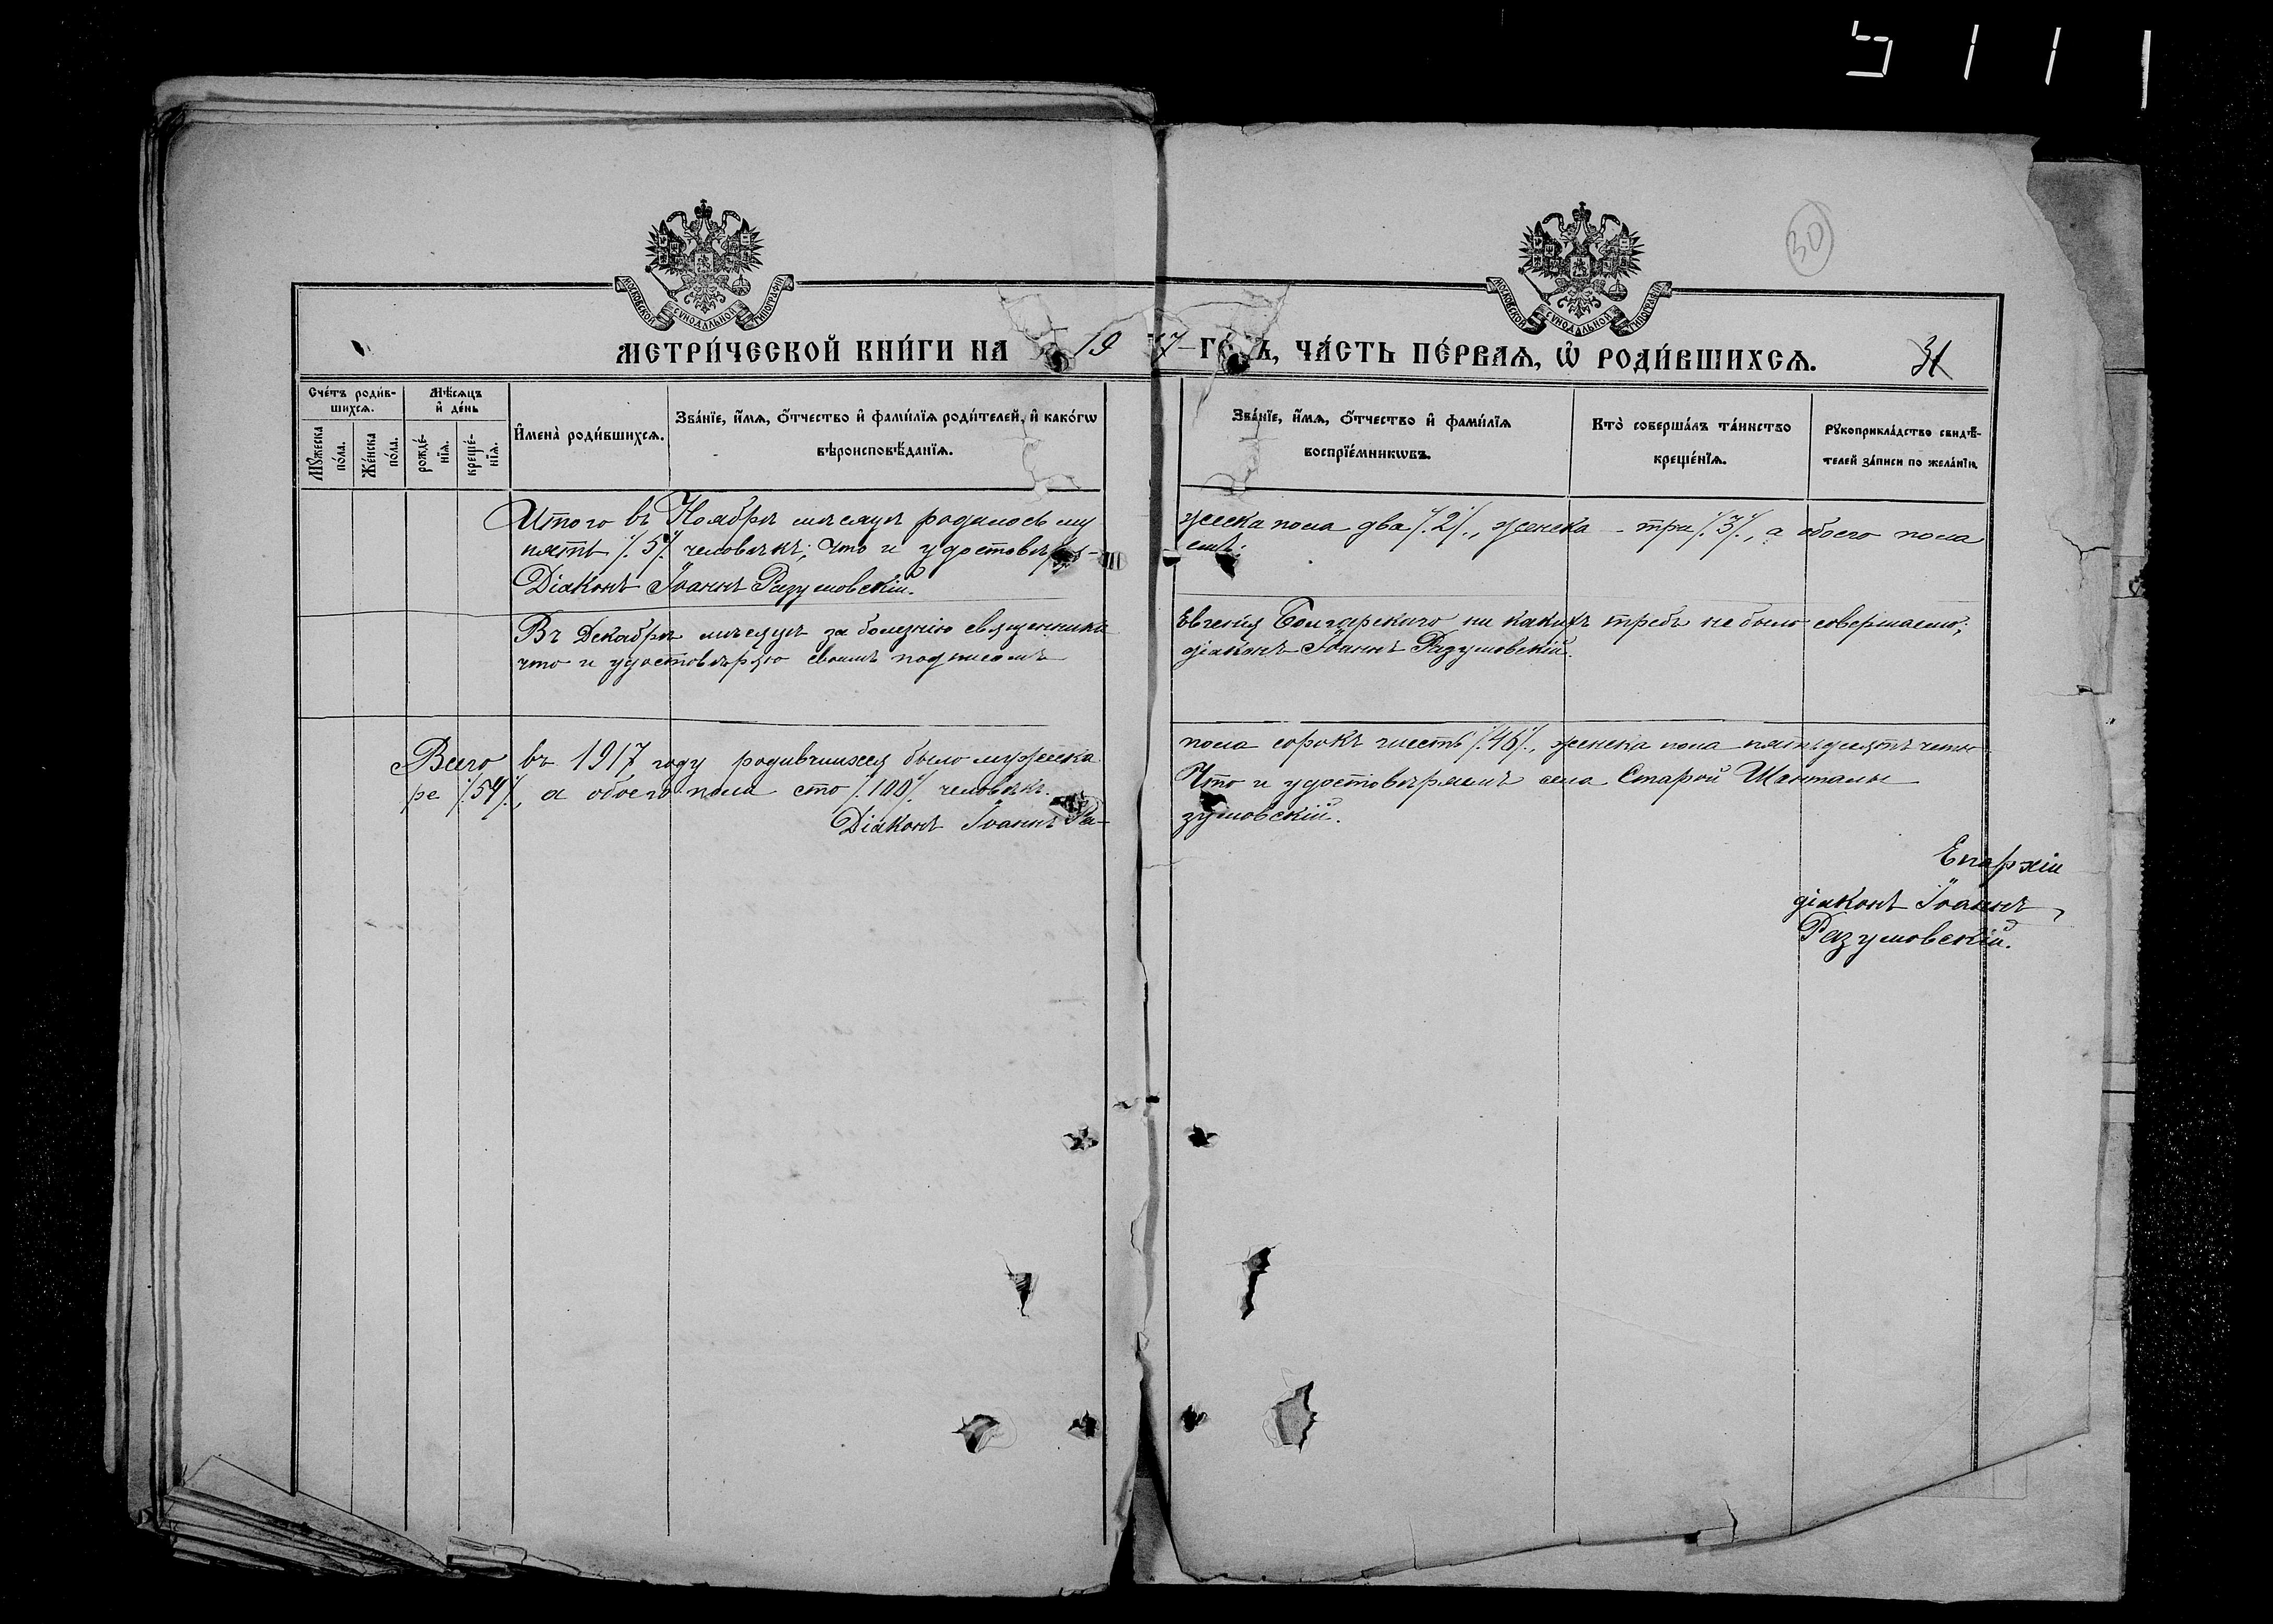 5 1 1 1
МОСКОВСКОЙ СѴНОДАЛЬНОЙ ТИПОГРАФІИ
МОСКОВСКОЙ СѴНОДАЛЬНОЙ ТИПОГРАФІИ
30
МЕТРИ́ЧЕСКОЙ КНИ́ГИ НА 1917 ГО́ДЪ, ЧА́СТЬ ПЕ́РВАѦ, Ѡ҆ РОДИ́ВШИХСѦ.
31
Сче́тъ роди́в-
шихсѧ.
Мѣ́сѧцъ
и҆ де́нь
Мꙋ́жеска
по́ла.
Же́нска
по́ла.
рожде́-
нїѧ.
креще́-
нїѧ.
И҆мена̀ роди́вшихсѧ.
Зва́нїе, и҆́мѧ, ѻ҆́тчество и҆ фами́лїѧ роди́телей, и҆ како́гѡ
вѣроисповѣ́данїѧ.
Зва́нїе, и҆́мѧ, ѻ҆́тчество и҆ фами́лїѧ
воспрїе́мникѡвъ.
Кто̀ соверша́лъ та́инство
креще́нїѧ.
Рꙋкоприкла́дство свидѣ́-
телей за́писи по жела́нїю.
Итого въ Ноябрѣ мѣсяцѣ родилось му
жеска пола два /.2/., женска - три /.3/., а обоего пола
пять /.5/. человѣкъ; что и удостовѣря-
емъ:
Діаконъ Іоаннъ Разумовскій.
Въ Декабрѣ мѣсяцѣ за болезнію священника
Евгенія Болгарскаго ни какихъ требъ не было совершаемо;
что и удостовѣряю своимъ подписомъ
діаконъ Іоаннъ Разумовскій.
Всего въ 1917 году родившихся было мужеска
пола сорокъ шесть /.46/., женска пола пятьдесятъ четы
ре /.54/., а обоего пола сто /.100/. человѣкъ.
Что и удостовѣряемъ села Старой Шенталы
Діаконъ Іоаннъ Ра-
зумовскій.
Епархіи
діаконъ Іоаннъ
Разумовскій.